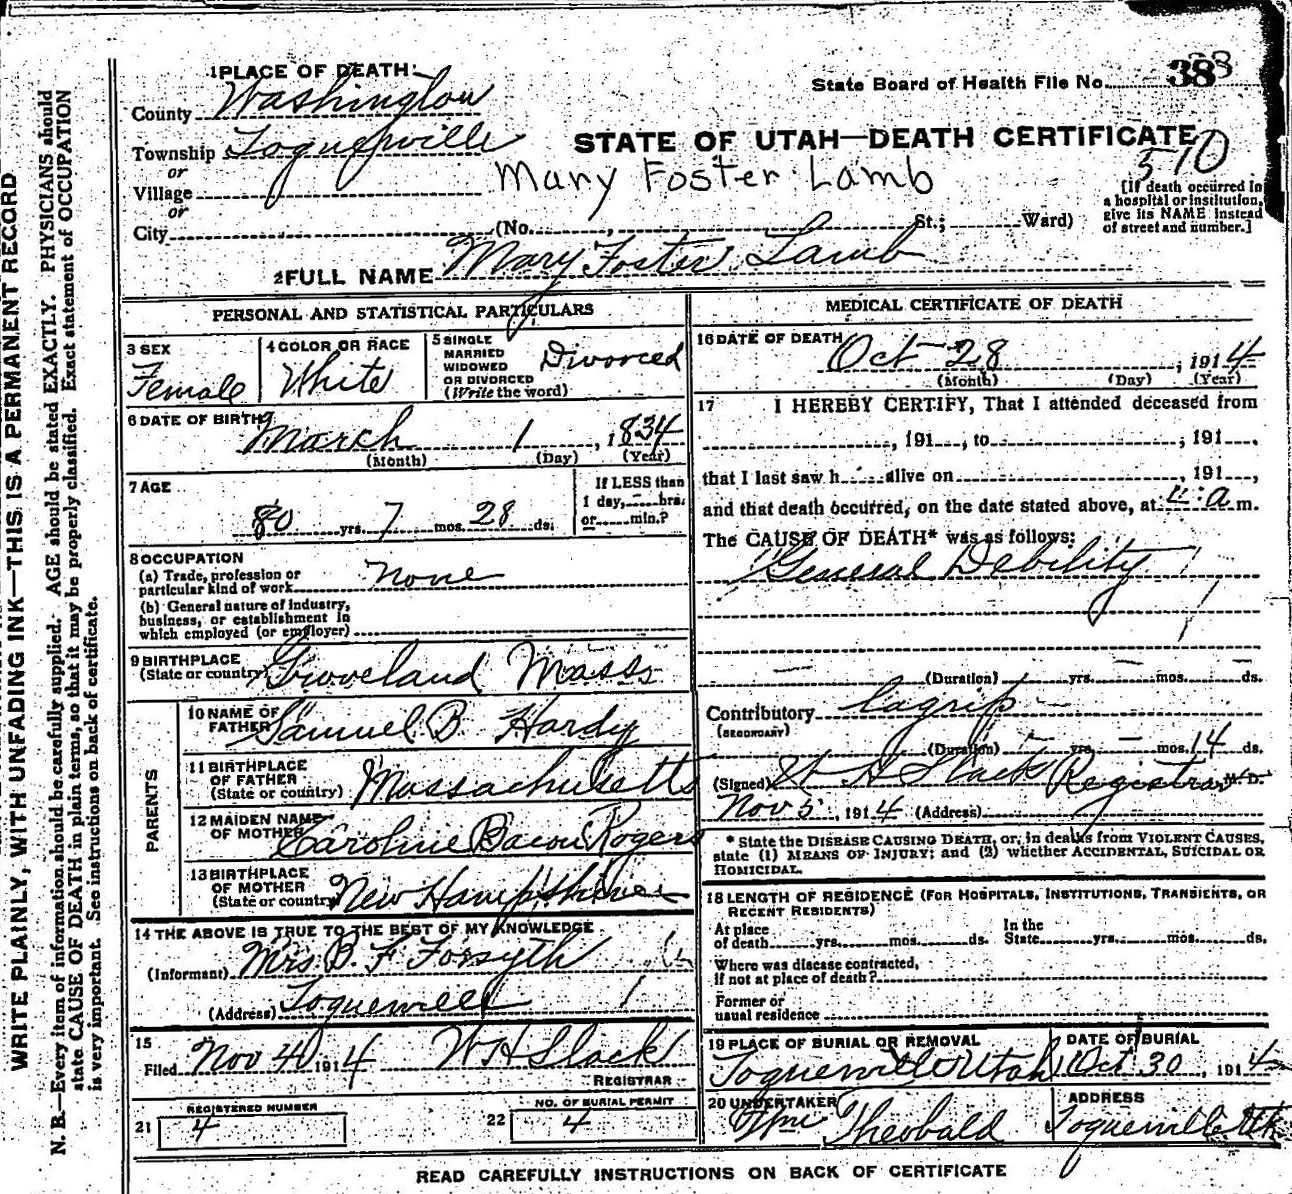 WRITE PLAINLY, WITH UNFADING INK—THIS IS A PERMANENT RECORD
N. B.—Every item of information should be carefully supplied. AGE should be stated EXACTLY. PHYSICIANS should
state CAUSE OF DEATH in plain terms, so that it may be properly classified. Exact statement of OCCUPATION
is very important. See instructions on back of certificate.
1 PLACE OF DEATH:
State Board of Health File No. 383
County Washington
Township Toquerville
STATE OF UTAH—DEATH CERTIFICATE
510
or
Village
Mary Foster Lamb
or
City (No. , St.; Ward)
[If death occurred in
a hospital or institution,
give its NAME instead
of street and number.]
2 FULL NAME Mary Foster Lamb
PERSONAL AND STATISTICAL PARTICULARS
3 SEX
Female
4 COLOR OR RACE
White
5 SINGLE
MARRIED
WIDOWED
OR DIVORCED
(Write the word)
Divorced
6 DATE OF BIRTH
March 1, 1834
(Month) (Day) (Year)
7 AGE
80 yrs. 7 mos. 28 ds.
If LESS than
1 day, hrs.
or min.?
8 OCCUPATION
(a) Trade, profession or
particular kind of work None
(b) General nature of industry,
business, or establishment in
which employed (or employer)
9 BIRTHPLACE
(State or country) Groveland Mass
PARENTS
10 NAME OF
FATHER Samuel B. Hardy
11 BIRTHPLACE
OF FATHER
(State or country) Massachusetts
12 MAIDEN NAME
OF MOTHER Caroline Bacon Rogers
13 BIRTHPLACE
OF MOTHER
(State or country) New Hampshire
14 THE ABOVE IS TRUE TO THE BEST OF MY KNOWLEDGE
(Informant) Mrs B. F Forsyth
(Address) Toquerville
15
Filed Nov 4 1914 W H Slack
REGISTRAR
21 REGISTERED NUMBER
4
22 NO. OF BURIAL PERMIT
4
MEDICAL CERTIFICATE OF DEATH
16 DATE OF DEATH
Oct 28, 1914
(Month) (Day) (Year)
17 I HEREBY CERTIFY, That I attended deceased from
, 191 , to , 191 ,
that I last saw h alive on , 191 ,
and that death occurred, on the date stated above, at 4:a m.
The CAUSE OF DEATH* was as follows:
General Debility
(Duration) yrs. mos. ds.
Contributory Lagrip
(SECONDARY)
(Duration) yrs. mos. 14 ds.
(Signed) W H Slack Registrar M. D.
Nov 5, 1914 (Address)
* State the DISEASE CAUSING DEATH, or, in deaths from VIOLENT CAUSES,
state (1) MEANS OF INJURY; and (2) whether ACCIDENTAL, SUICIDAL OR
HOMICIDAL.
18 LENGTH OF RESIDENCE (FOR HOSPITALS, INSTITUTIONS, TRANSIENTS, OR
RECENT RESIDENTS)
At place
of death yrs. mos. ds.
In the
State yrs. mos. ds.
Where was disease contracted,
if not at place of death?
Former or
usual residence
19 PLACE OF BURIAL OR REMOVAL
Toquerville Utah
DATE OF BURIAL
Oct 30, 1914
20 UNDERTAKER
Wm Theobald
ADDRESS
Toquerville Utah
READ CAREFULLY INSTRUCTIONS ON BACK OF CERTIFICATE